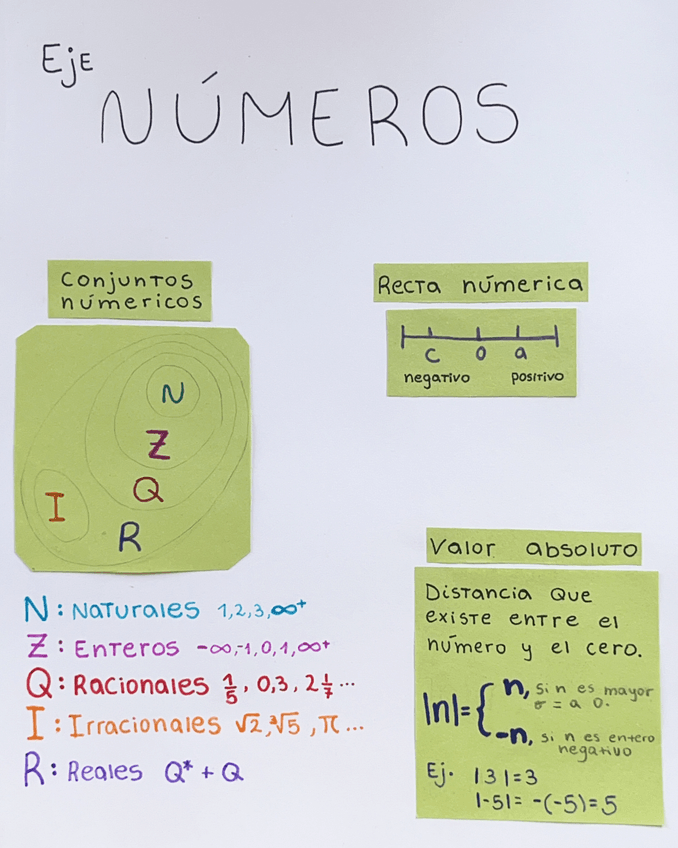 Eje
NÚMEROS
Conjuntos
númericos
N
Z
Q
I
R
N: Naturales 1,2,3,∞⁺
Z: Enteros -∞,-1,0,1,∞⁺
Q: Racionales 1/5, 0,3, 2 1/7 ...
I: Irracionales √2, ∛5, π ...
R: Reales Q* + Q
Recta númerica
c 0 a
negativo positivo
Valor absoluto
Distancia que
existe entre el
número y el cero.
|n|= { n, si n es mayor
o = a 0.
-n, si n es entero
negativo
Ej. |3|=3
|-5|= -(-5)=5